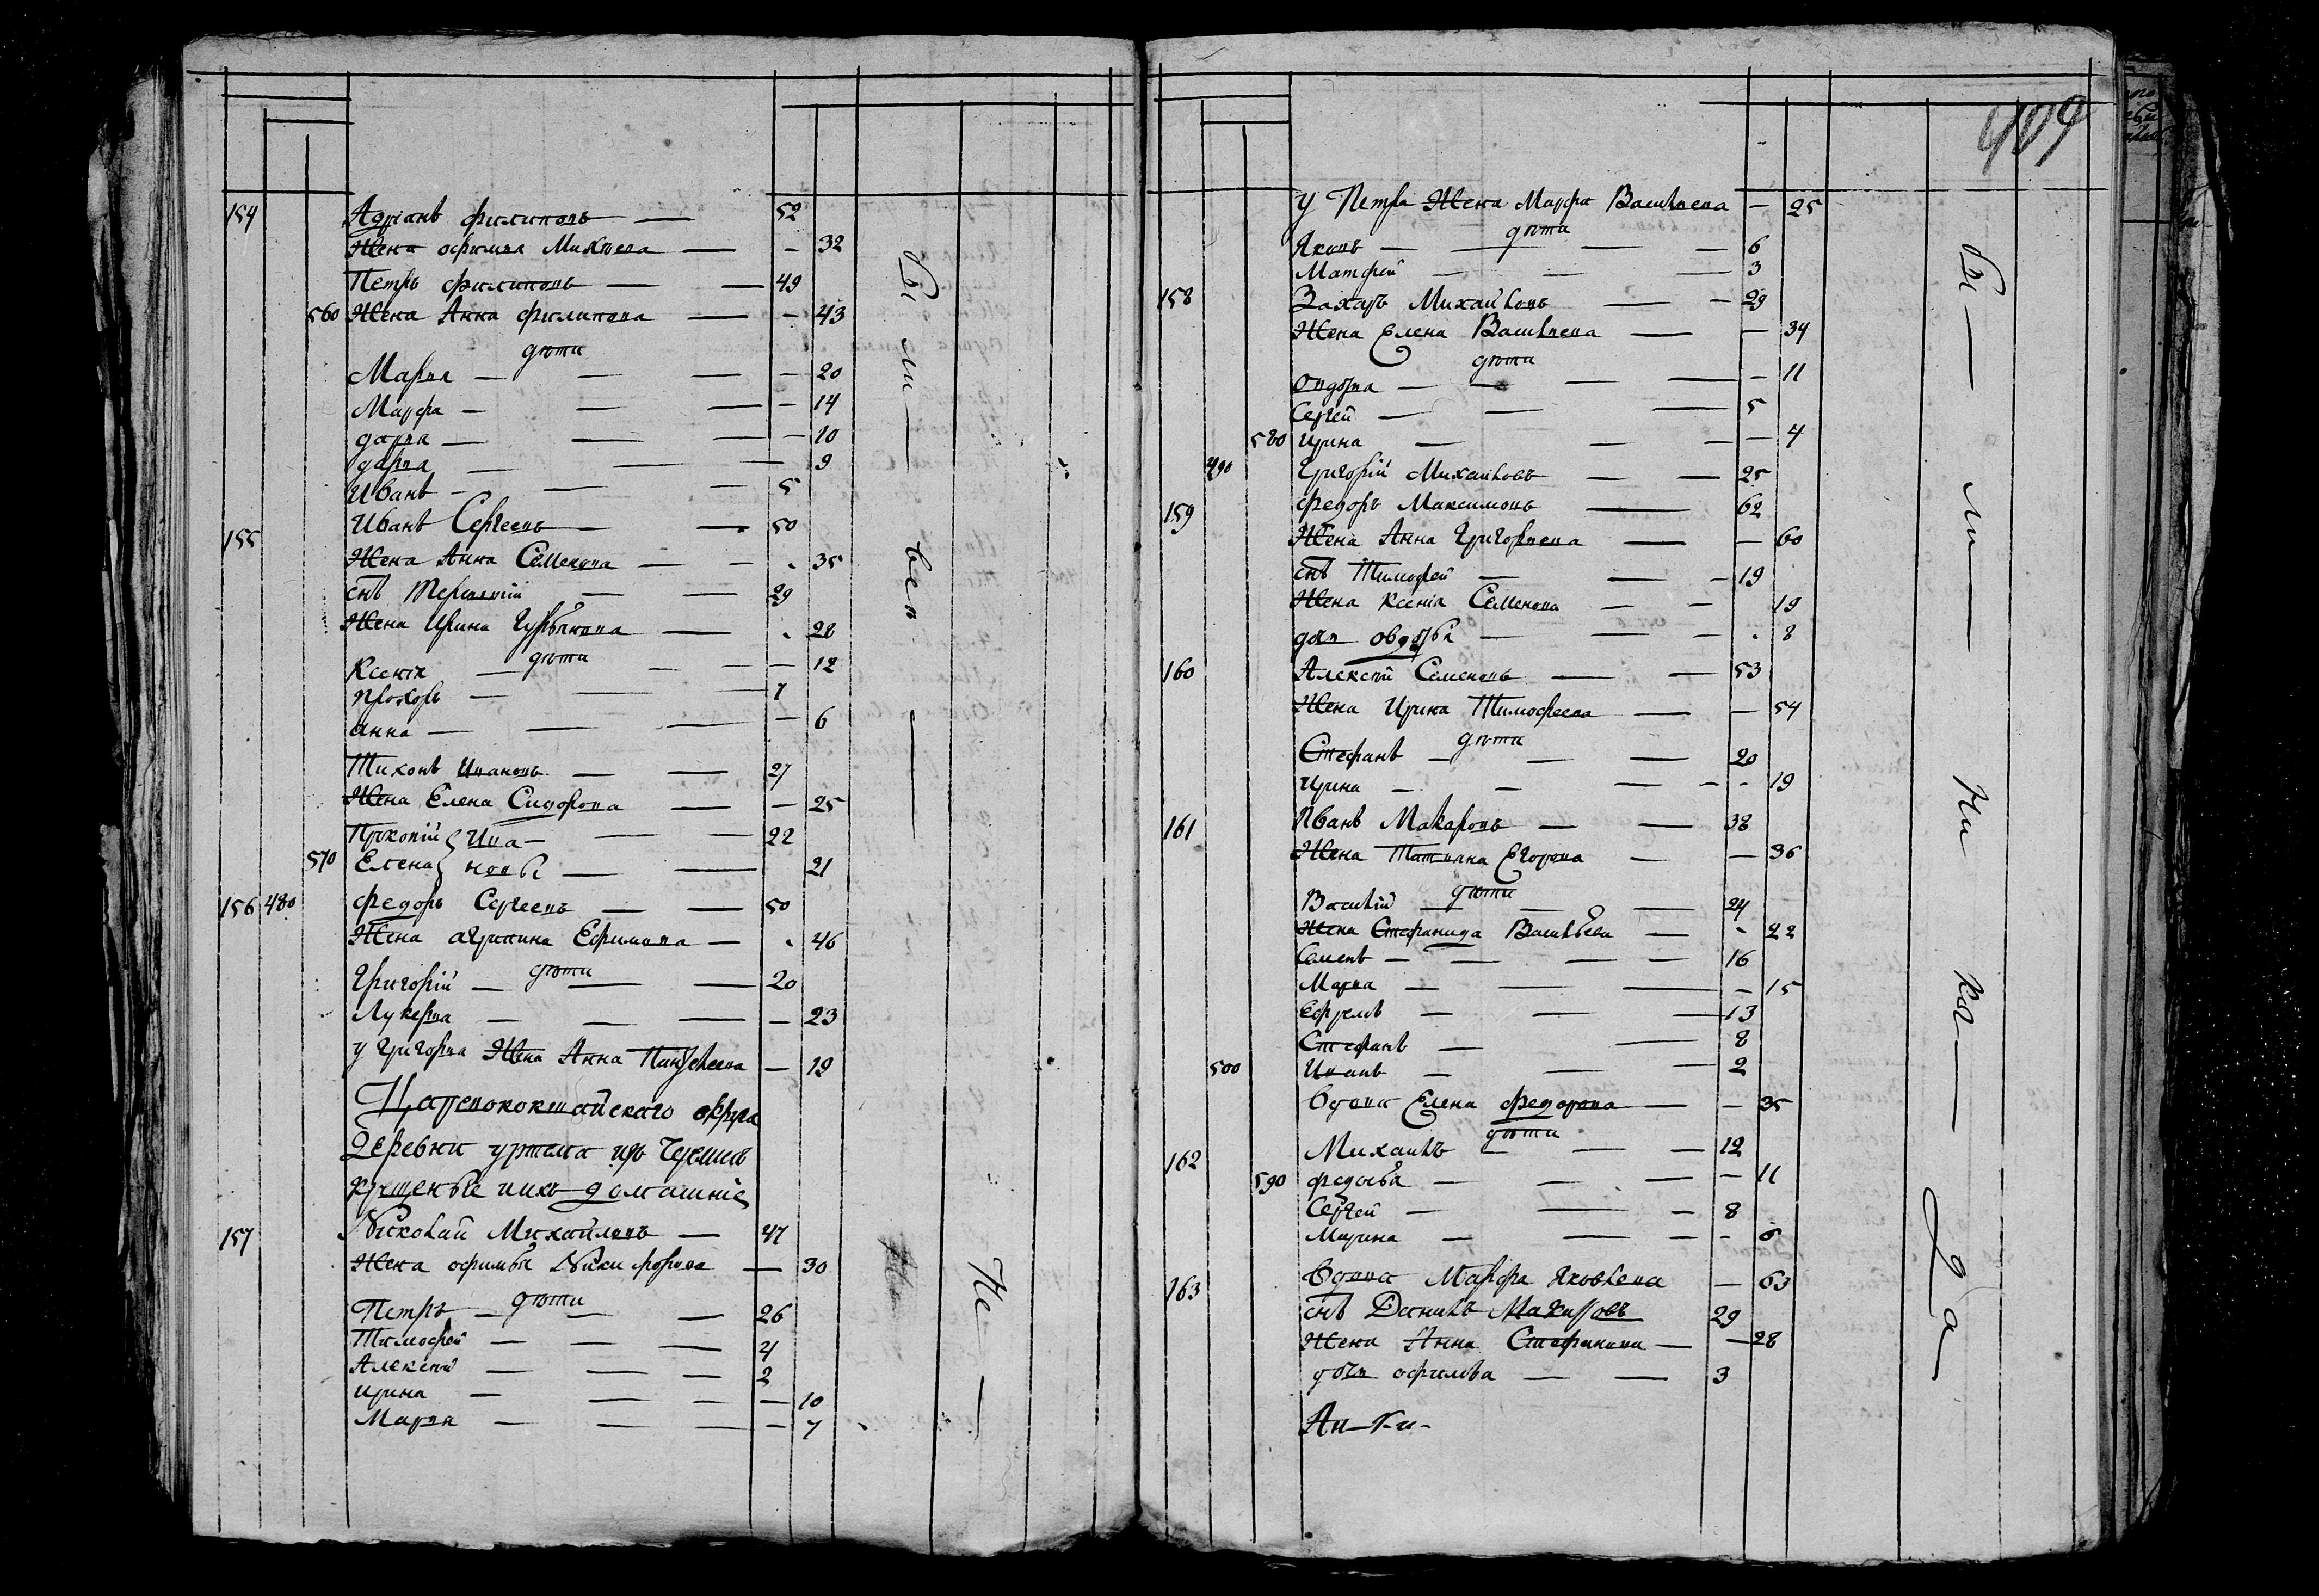 154 Адрiанъ филиповъ — 52
Жена офимья Михѣева — — 32
Петръ филиповъ — — 49
560 Жена Анна филипова — — 43
дѣти
Марья — — — — 20
Марфа — — — — 14
дарья — — — — 10
дарья — — — 9
Иванъ — — — 5
155 Иванъ Сергеевъ — — 50
Жена Анна Семенова — — 35
снъ — — 29
Жена Ирина — 28
дѣти
Ксенiя — — — — 12
прохоръ — — — 7
анна — — — — 6
Тихонъ Ивановъ — — 27
Жена Елена Сидорова — — 25
Прокопiй Ива- — — 22
570 Елена новы — — 21
156 480 федоръ Сергеевъ — — 50
Жена агрипина Ефимова — 46
дѣти
Григорiй — — — 20
Лукерья — — — — 23
у Григорья Жена Анна — 19
Царевококшайскаго округа
деревни уртема изъ Черемисъ
крещеные ихъ домашнiе
157 Николай Михайловъ — 47
Жена офимья Никифорова — 30
дѣти
Петръ — — — 26
Тимофей — — — 4
Алексѣй — — — 2
ирина — — — — 10
Марья — — — — 7
Бы — ли — всѣ —
Не —
409
у Петра Жена Марфа Васильева — 25
дѣти
Яковъ — — — 6
Матфей — — — 3
158 Захаръ Михайловъ — — 29
Жена Елена Васильева — — 34
дѣти
овдотья — — — — — 11
Сергей — — — 5
580 ирина — — — — 4
490 Григорiй Михайловъ — — 25
159 федоръ Максимовъ — 62
Жена Анна Григорьева — — 60
снъ Тимофей — — — 19
Жена Ксенiя Семенова — — 19
дочь овдотья — — — 8
160 Алексѣй Семеновъ — — 53
Жена Ирина Тимофеева — — 54
дѣти
Стефанъ — — — 20
Ирина — — — — - 19
161 Иванъ Макаровъ — — 38
Жена Татьяна Егорова — — 36
дѣти
Василiй — — — 24
Жена Стефанида Васильева — - 22
Семенъ — — — — 16
Марья — — — — 15
Ефремъ — — — 13
Стефанъ — — 8
500 Иванъ — — — 2
вдова Елена федорова — — 35
дѣти
162 Михаилъ — — — 12
590 федосья — — — — 11
Сергей — — — 8
Марина — — — - 6
163 вдова Марфа Яковлева — 63
снъ Данилъ 29
Жена Анна Стефанова — — 28
дочь офимья — — 3
Бы — ли — Ни — ко — — да —